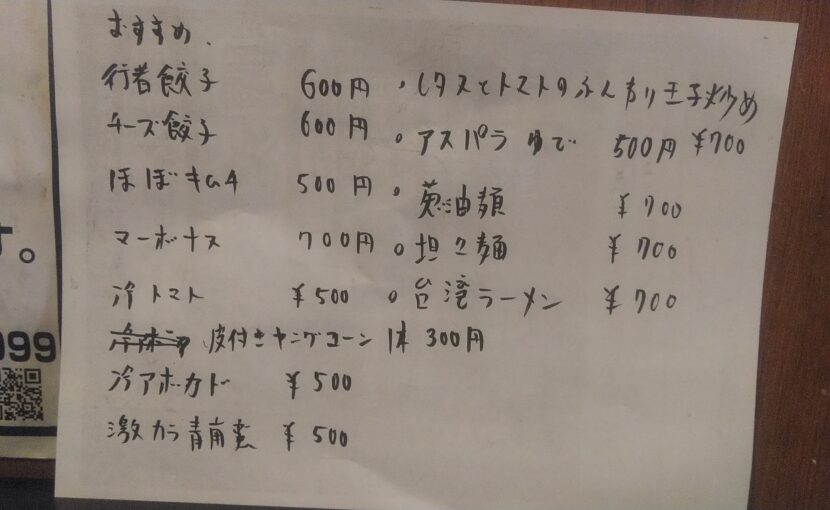 おすすめ.
行者餃子 600円
チーズ餃子 600円
ほぼキムチ 500円
マーボナス 700円
冷トマト ¥500
皮付きヤングコーン 1本 300円
冷アボカド ¥500
激カラ青南蛮 ¥500
・レタスとトマトのふんわり玉子炒め
¥700
。アスパラゆで 500円
。葱油麺 ¥700
。坦々麺 ¥700
。台湾ラーメン ¥700
す。
999